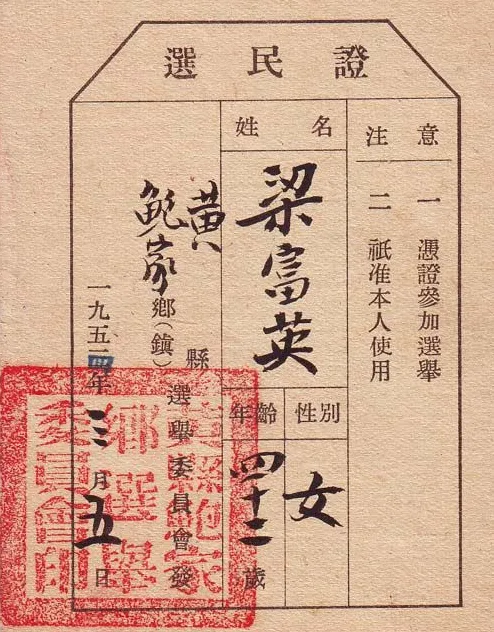 選民證
注意
一 憑證參加選舉
二 祇准本人使用
姓名
梁富英
性別
女
年齡
四十二歲
黃縣
鮑家鄉(鎮)
選舉委員會發
一九五四年三月五日
黃縣鮑家
鄉選舉
委員會印